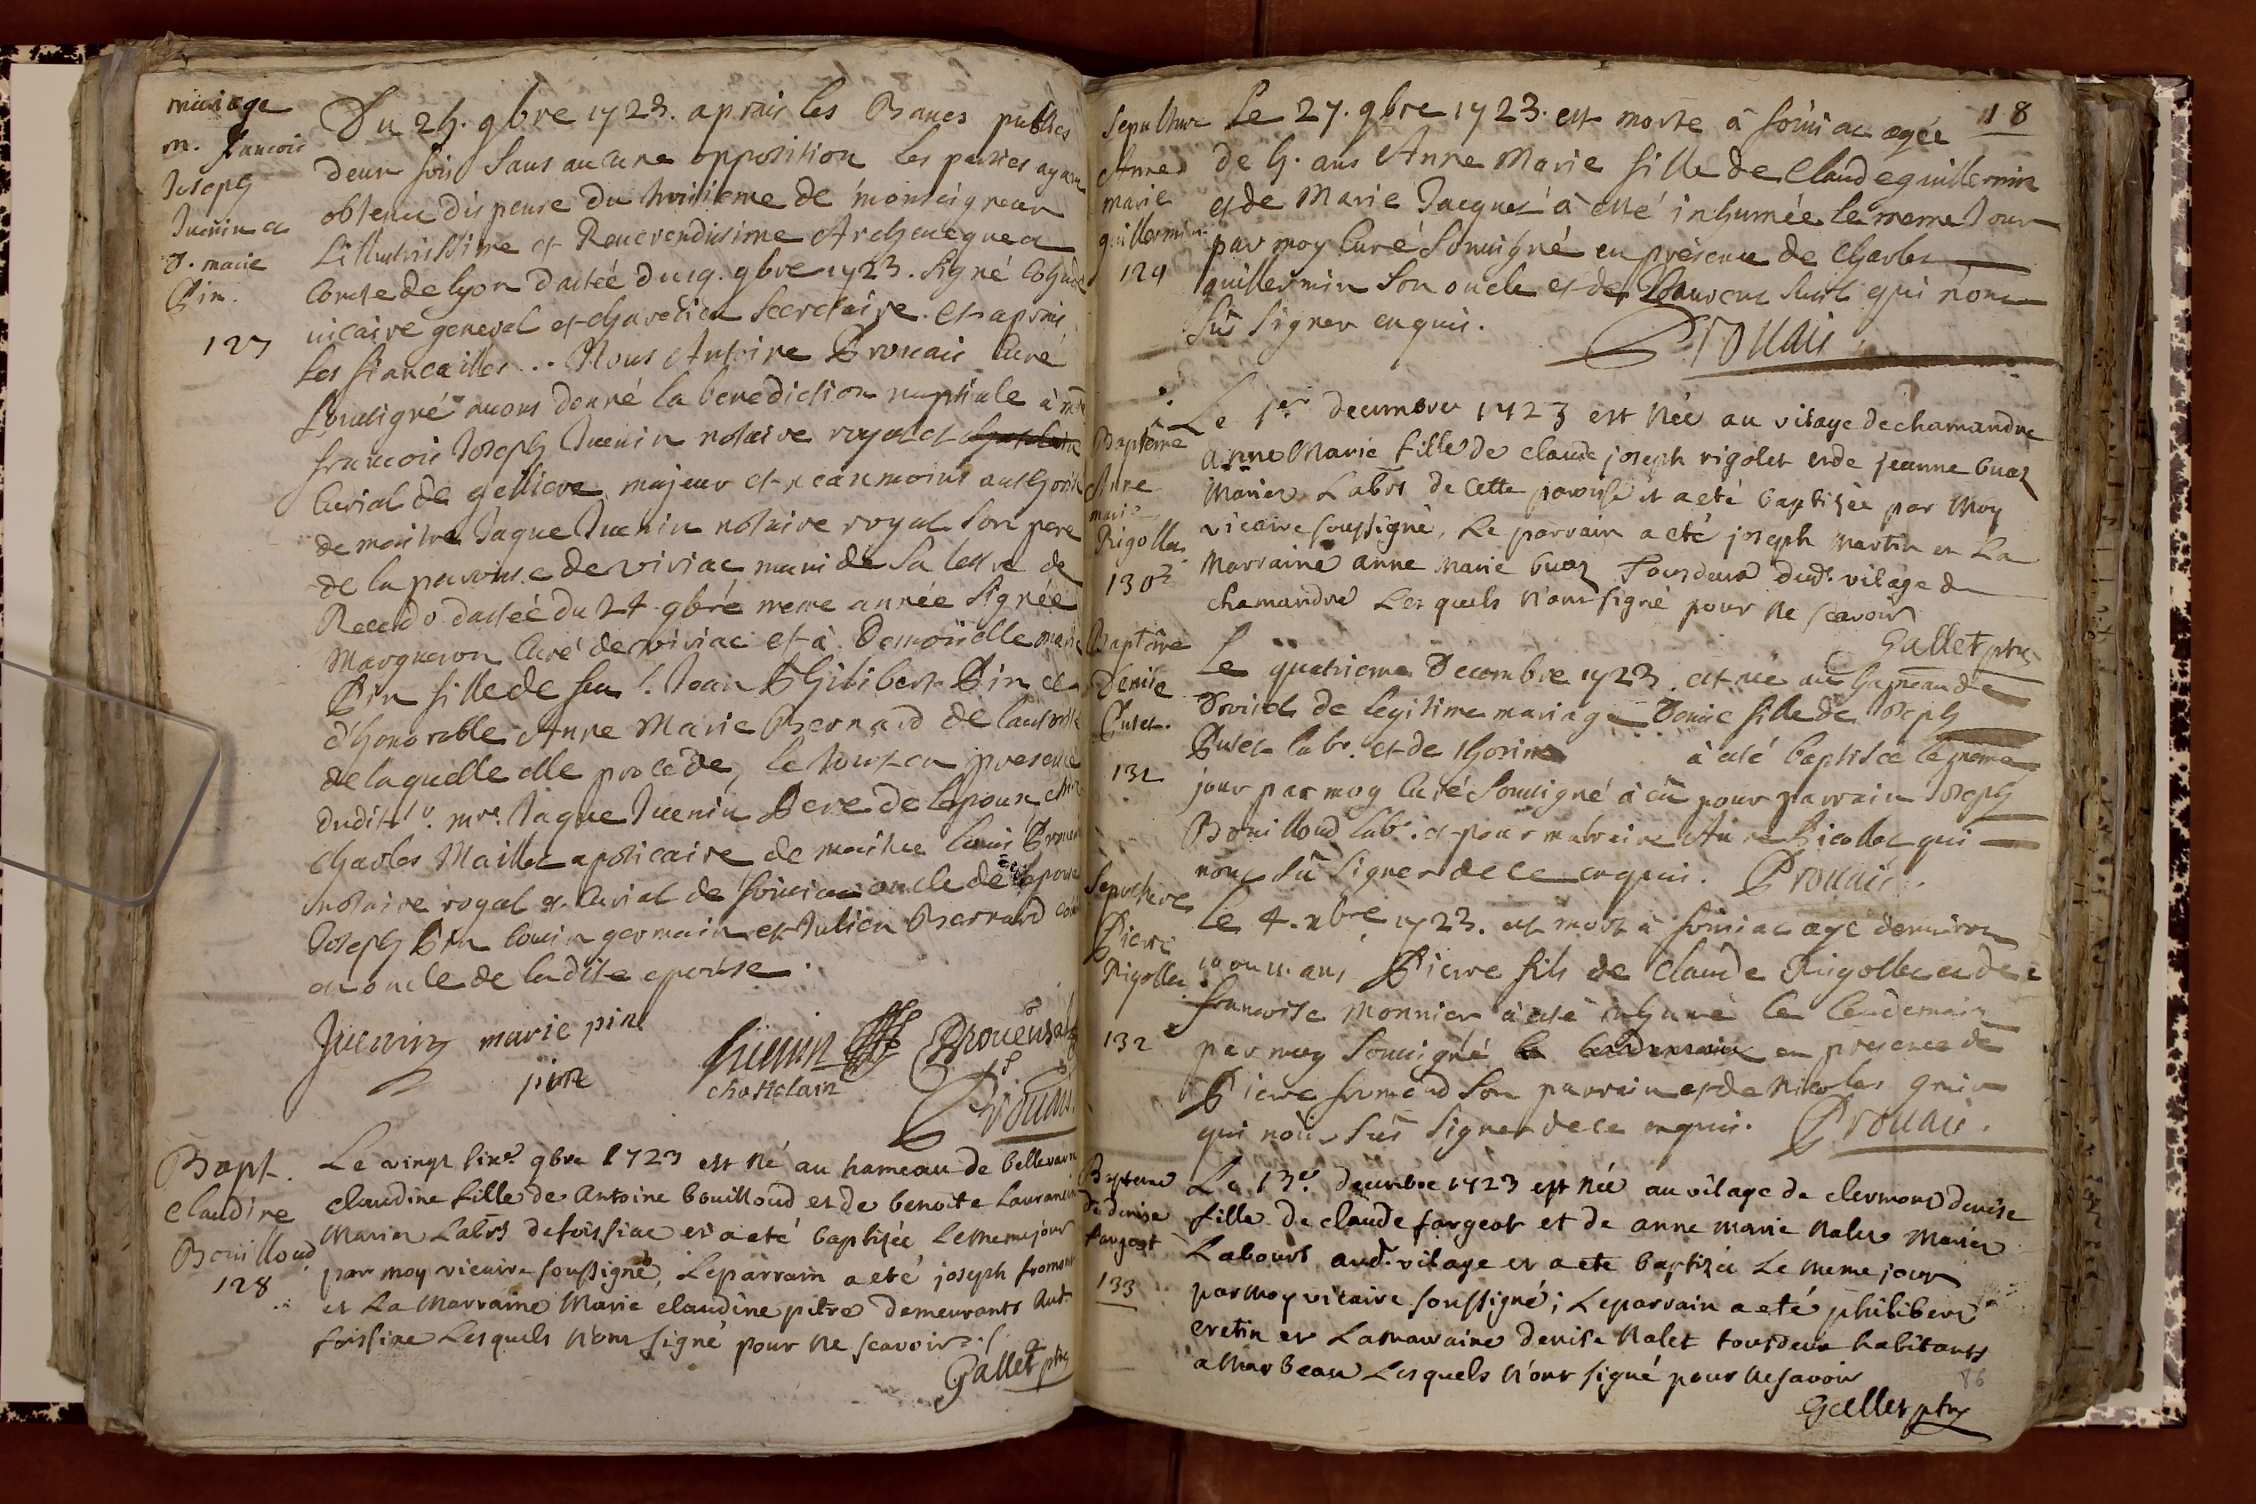 mariage
m. francois
Joseph
Juenin et
d. marie
Pin.
127
Du 25. 9bre 1723. aprais les Bancs publiés
deux fois sans aucune opposition les parties ayant
obtenu dispense du troisieme de monseigneur
Lillustrissime et Reverendissime Archeveque et
Comte de Lyon dattée du 19. 9bre 1723. signé
vicaire general et secretaire. et aprais
les fiancailles... Nous Antoine Prouais Curé
Soussigné avons donné la benediction nuptiale à
francois Joseph Juenin notaire royal et
Curial de majeur et neanmoins authorisé
de maitre Jaque Juenin notaire royal son pere
de la paroisse de viriac muni de sa lettre de
Recedo dattée du 24. 9bre meme année signée
Margueron Curé de viriac et à Demoiselle marie
Pin fille de feu s. Jean Philibert Pin et
d'honorable Anne Marie Bernard de lautorité
de laquelle elle procéde, le tout en presence
dudit sr. mre. Jaque Juenin Pere de lepoux,
Charles Maillet apoticaire de maitre
notaire royal et Curial de foissiac oncle de lepouse
Joseph Pin cousin germain et Julien Bernard
oncle de ladite epouse.
Juenin marie pin
pin
Juenin
chattelain
Prouais
Bapt.
Claudine
Bouilloud
128
Le vingt sixe. 9bre 1723 est né au hameau de
claudine fille de Antoine bouilloud et de benoite
mariez Labrs de foissiac et a eté baptisée Le meme jour
par moy vicaire soussigné, Le parrain a eté joseph fromont
et La marraine Marie claudine pitre demeurants aud.
Lesquels n'ont signé pour ne scavoir
Gallet ptre
18
Sepulture
Anne
marie
guillermin
129
Le 27. 9bre 1723. est morte à foissiac agée
de 5. ans Anne Marie fille de Claude guillermin
et de Marie Jacquet à esté inhumée le meme Jour
par moy Curé Soussigné en présence de Charles
guillermin son oncle et de Laurent qui nont
sû signer enquis.
Prouais
Baptême
Anne
marie
Rigollet
130
Le 1er decembre 1723 est née au vilage de chamandre
anne Marie fille de claude joseph rigolet et de jeanne buaz
Mariez Labrs de cette paroisse et a eté baptisée par Moy
vicaire soussigné, Le parrain a eté joseph martin et La
Marraine anne Marie buaz Tous deux dud. vilage de
chamandre Lesquels n'ont signé pour ne scavoir
Gallet ptre
Baptême
Denise
Putet.
131
Le quatrieme Decembre 1723. est née au hameau de
de legitime mariage Denise fille de Joseph
Putet labr. et de à esté baptisée le meme
jour par moy Curé Soussigné à eu pour parrain Joseph
Bouilloud labr. et pour marraine qui
nont sû signer de ce enquis. Prouais.
Sepulture
Pierre
Rigollet
132
Le 4. xbre 1723. est mort à foissiac agé denviron
10 ou 11. ans Pierre fils de Claude Rigollet et de
francoise Monnier à esté inhumé le lendemain
par moy Soussigné en presence de
Pierre son parrain et de Nicolas
qui nont sû signer de ce enquis. Prouais.
Bapteme
de denise
fargeot
133
Le 13e decembre 1723 est née au vilage de clermont denise
fille de claude fargeot et de anne marie Nalet Mariez
Labours aud. vilage et a eté baptisée Le meme jour
par moy vicaire soussigné; Le parrain a eté philibert
cretin et La marraine denise Nalet tous deux habitants
a Marbeau Lesquels n'ont signé pour ne savoir
86
Gallet ptre